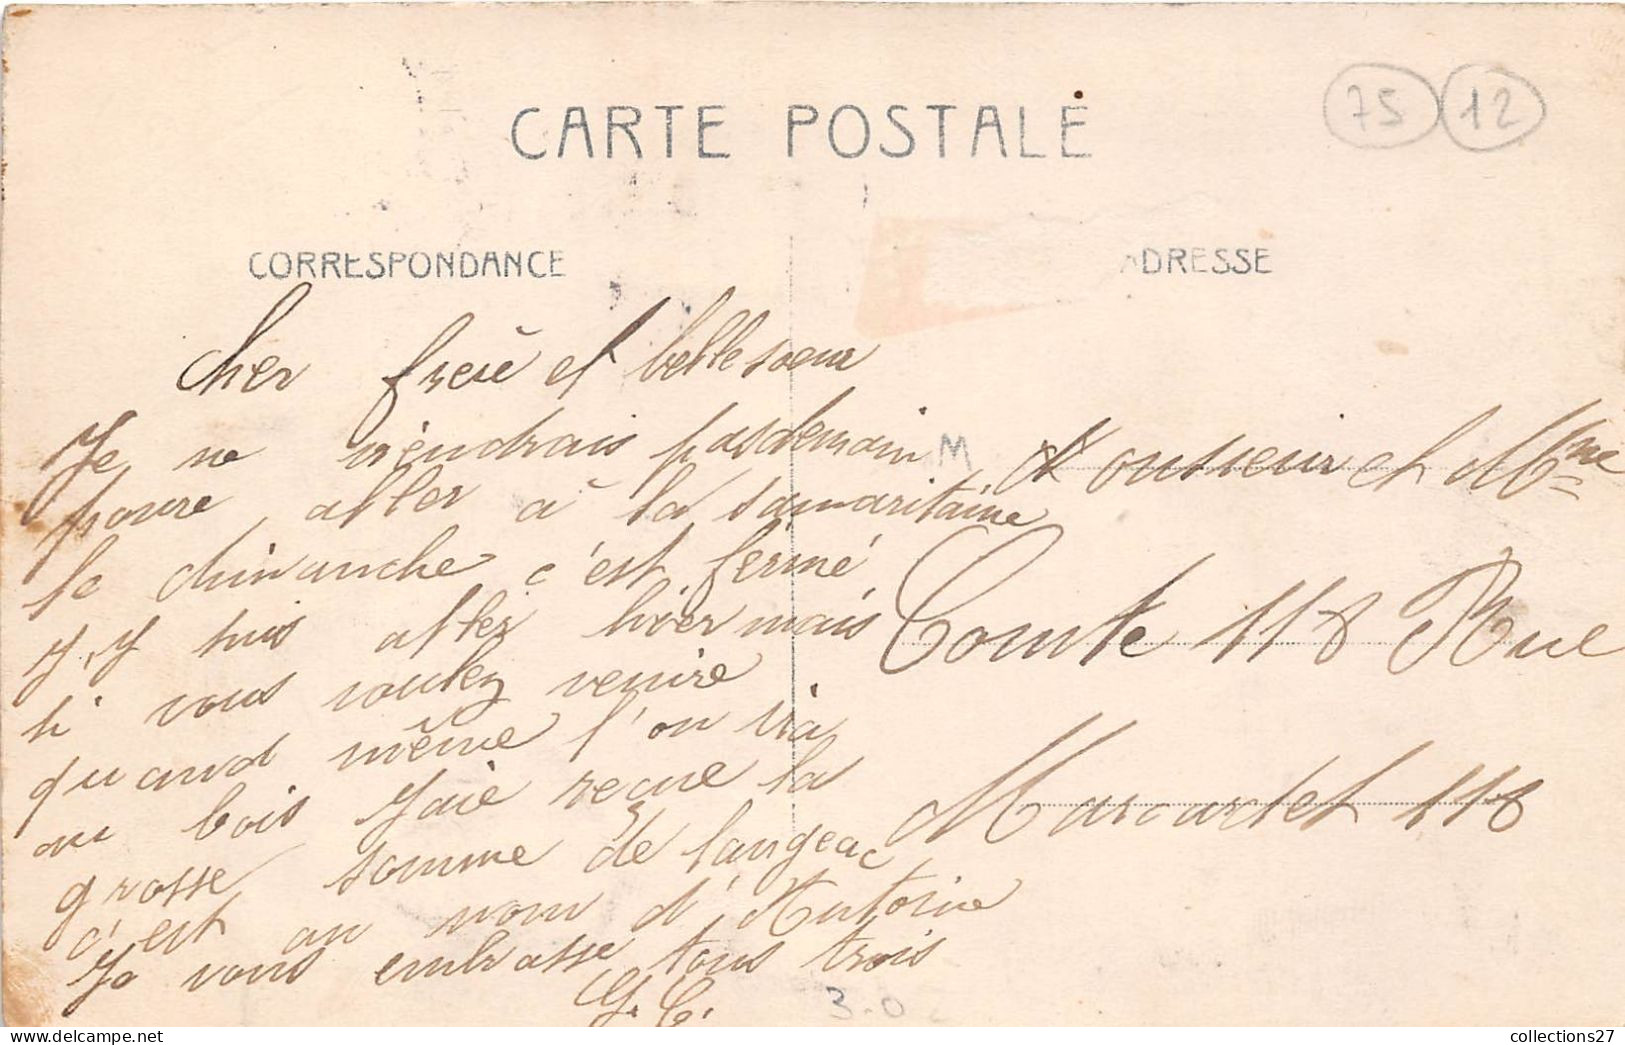 CARTE POSTALE
75 12
CORRESPONDANCE
ADRESSE
Cher frere et belle soeur
Je ne viendrais pas demain
poure aller à la samaritaine
le dimanche c'est fermé
J,y suis allez hier mais
si vous voulez venire
quand même l'on ira
au bois J'aie reçue la
grosse somme de langeac
c'est au nom d'Antoine
Je vous embrasse tous trois
G. C.
M Monsieur et Mme
Comte 118 Rue
Marcardet 118
3.0
collections27